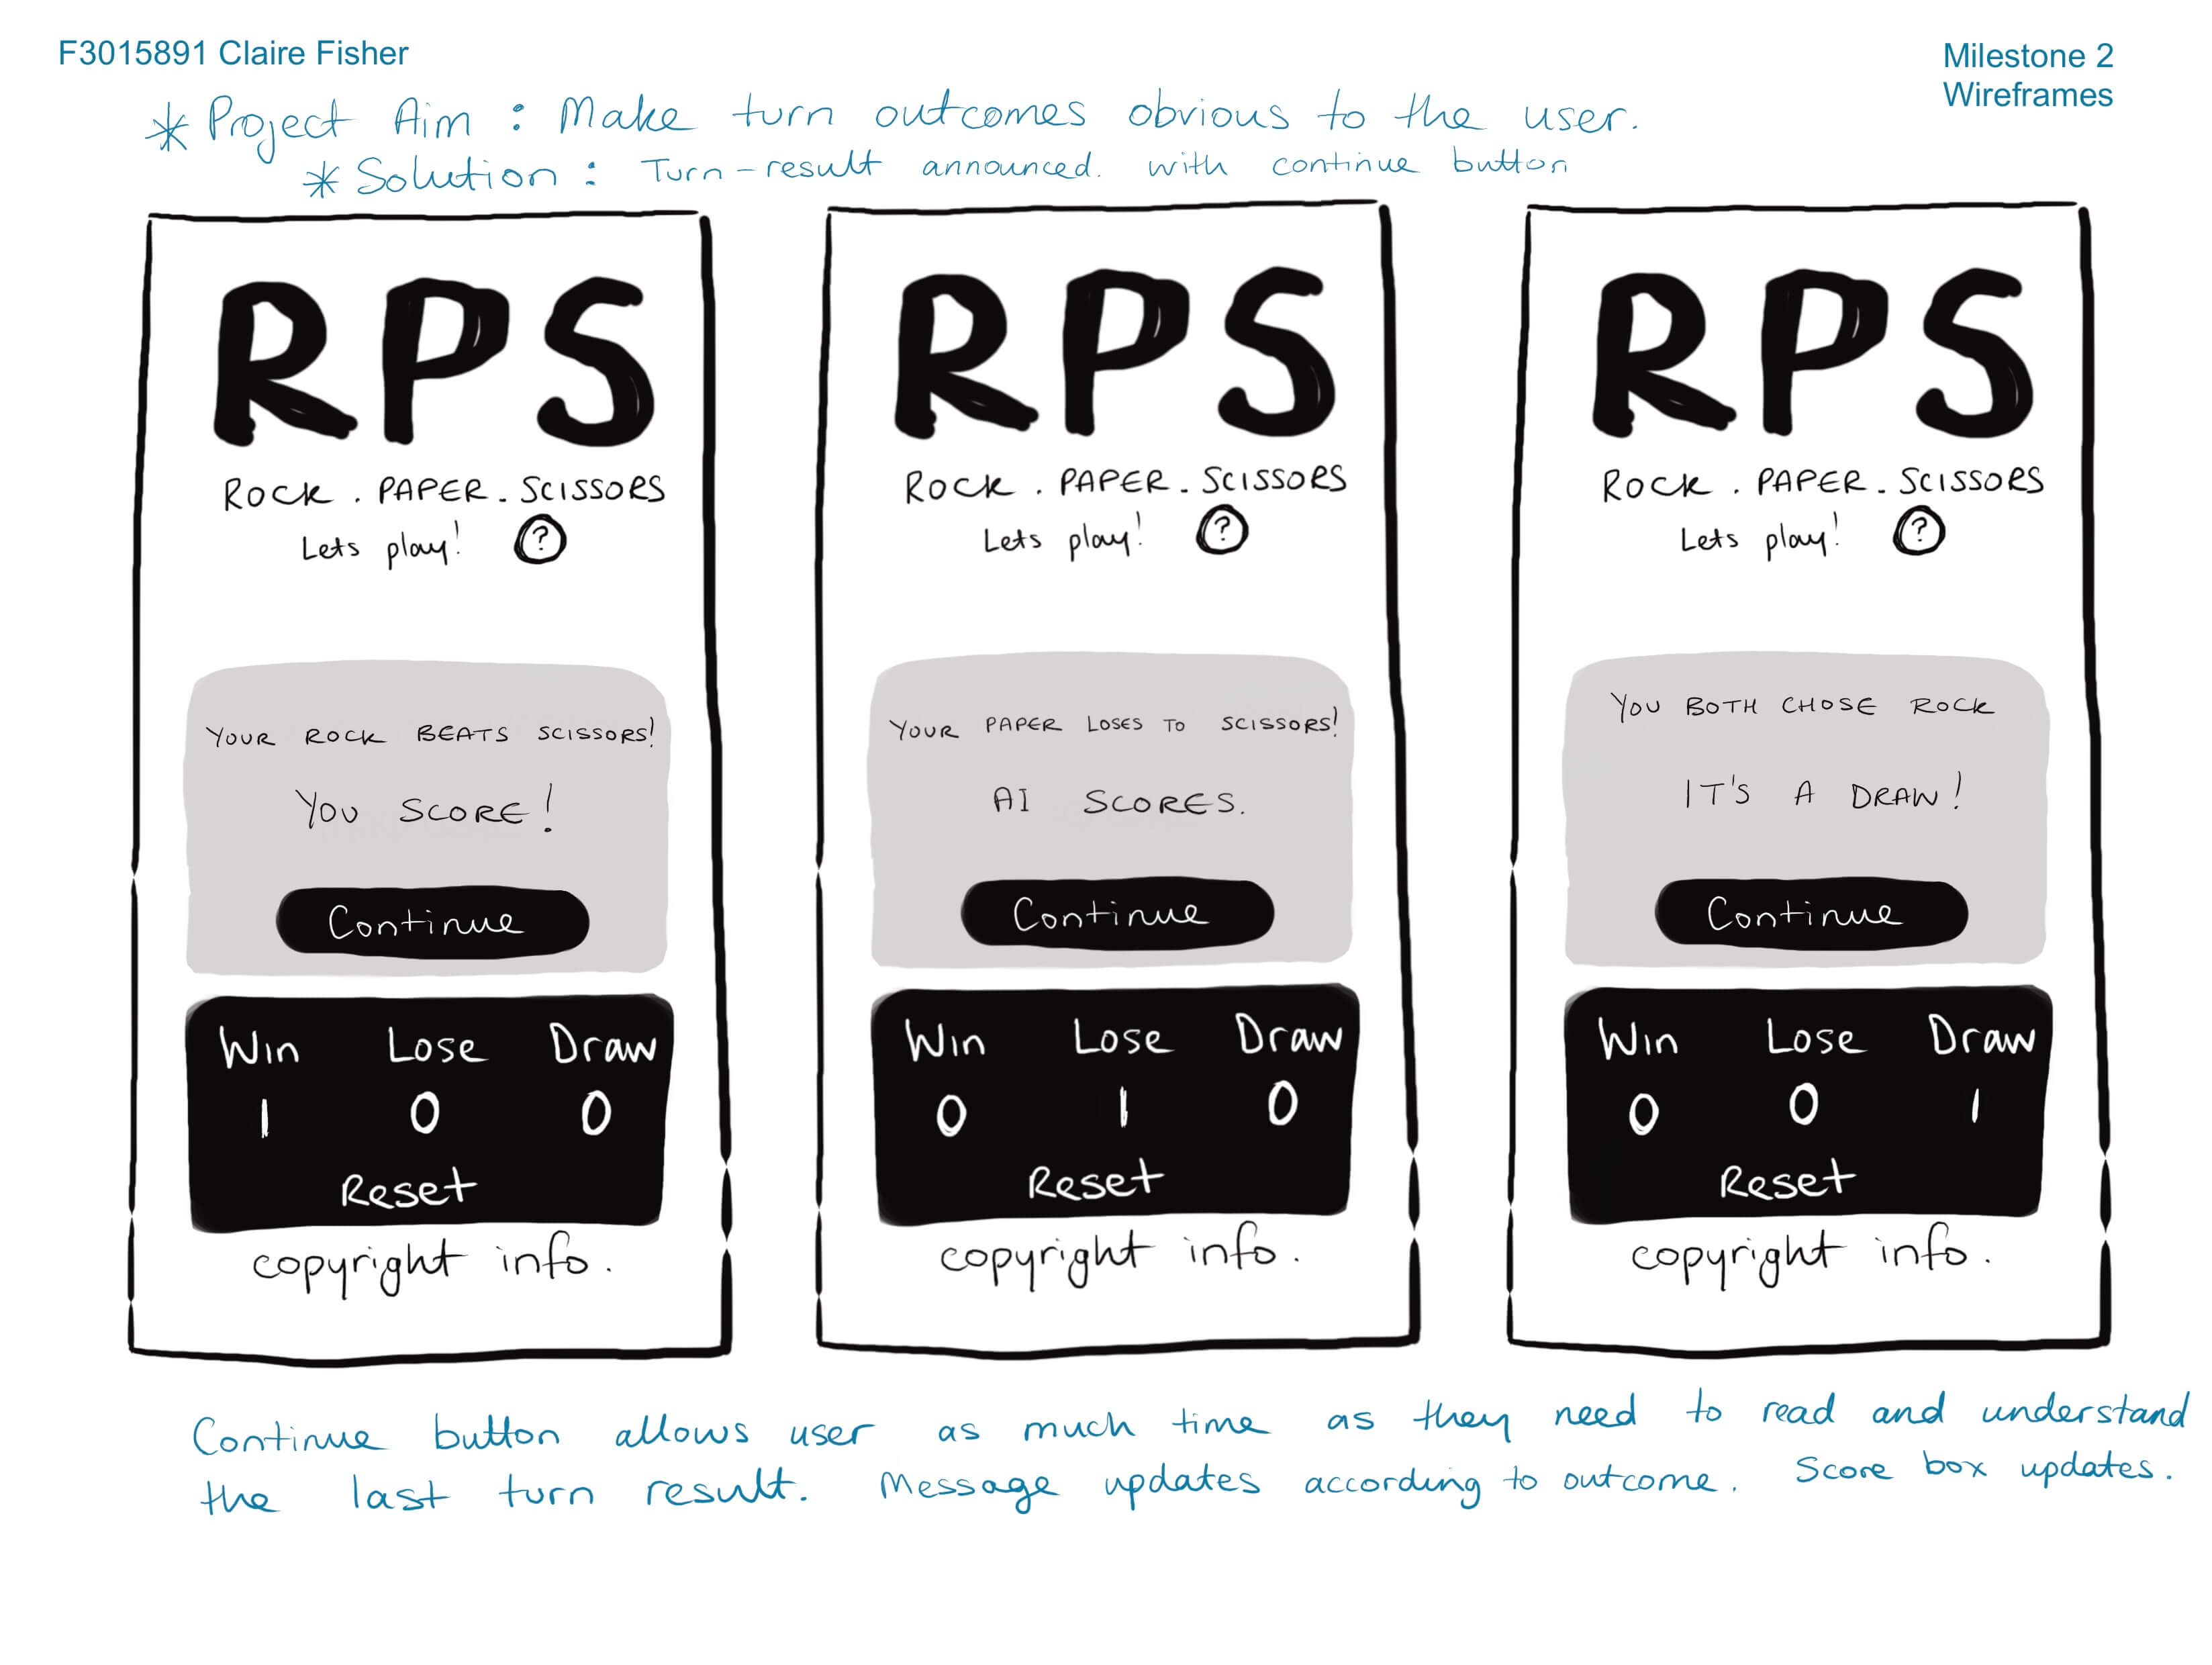 F3015891 Claire Fisher
Milestone 2
Wireframes
* Project Aim : Make turn outcomes obvious to the user.
* Solution : Turn-result announced. with continue button
RPS
ROCK . PAPER . SCISSORS
Lets play! ?
YOUR ROCK BEATS SCISSORS!
YOU SCORE!
Continue
Win Lose Draw
1 0 0
Reset
copyright info.
RPS
ROCK . PAPER . SCISSORS
Lets play! ?
YOUR PAPER LOSES TO SCISSORS!
AI SCORES.
Continue
Win Lose Draw
0 1 0
Reset
copyright info.
RPS
ROCK . PAPER . SCISSORS
Lets play! ?
YOU BOTH CHOSE ROCK
IT'S A DRAW!
Continue
Win Lose Draw
0 0 1
Reset
copyright info.
Continue button allows user as much time as they need to read and understand
the last turn result. Message updates according to outcome. Score box updates.